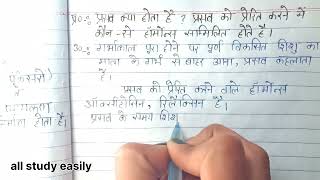 प्र०:- प्रसव क्या होता है ? प्रसव को प्रेरित करने में
कौन-से हॉर्मोन्स सम्मिलित होते हैं।
उ०:- गर्भाकाल पूरा होने पर पूर्ण विकसित शिशु का
माता के गर्भ से बाहर आना, प्रसव कहलाता
है।
प्रसव को प्रेरित करने वाले हॉर्मोन्स
ऑक्सीटोसिन, रिलैक्सिन है।
प्रसव के समय शिशु
होता है।
all study easily